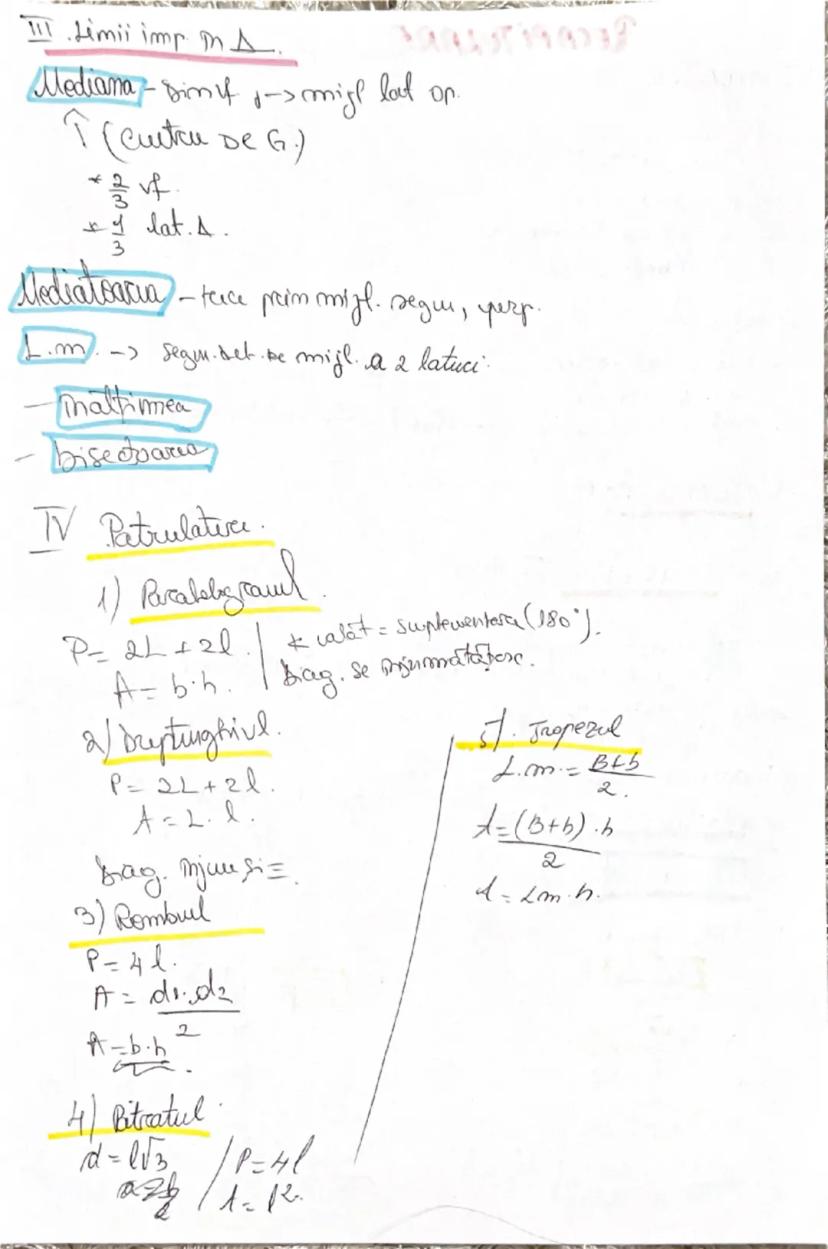 III. Linii imp. în Δ.
Mediana - din vf, → mijl lat op.
↑ (Centru DE G.)
* 2/3 vf.
* 1/3 lat. Δ.
Mediatoarea - trece prin mijl. segm, perp.
L.m. -> segm. det. de mijl. a 2 laturi.
- Înălțimea
- bisectoarea
IV Patrulatere.
1) Paralelogramul.
P = 2L + 2l. | * = suplementare (180°).
A = b·h. | Diag. se înjumătățesc.
2) Dreptunghiul.
P = 2L + 2l.
A = L·l.
Diag. înjum și =.
3) Rombul
P = 4l.
A = d1·d2/2
A = b·h.
4) Pătratul.
d = l√3 / P = 4l
A = l².
5). Trapezul
L.m. = B+b/2.
A = (B+b)·h/2
A = Lm·h.